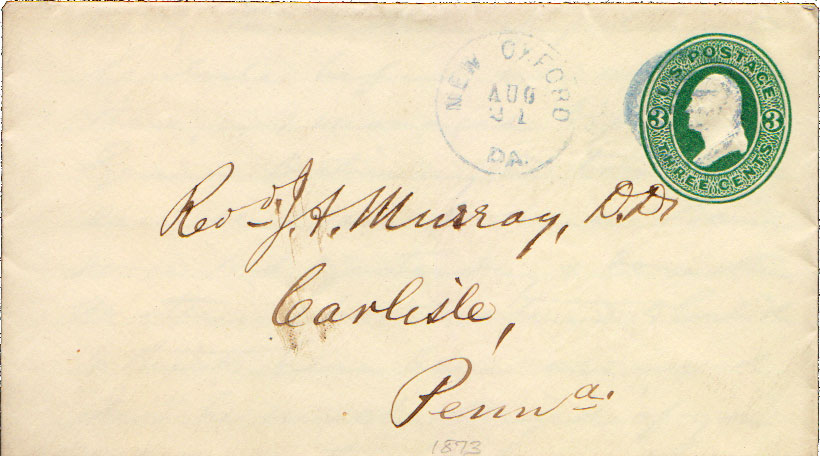 NEW OXFORD
AUG
21
PA.
U.S. POSTAGE
3 3
THREE CENTS
Revd. J. A. Murray, D.D.
Carlisle,
Penna.
1873